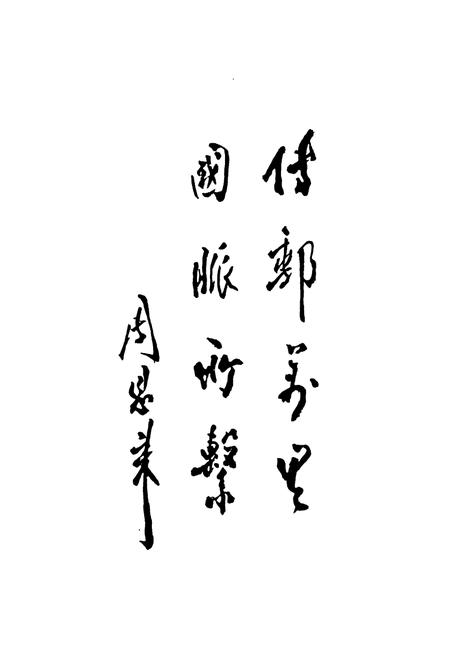 傳郵萬里
國脈所繫
周恩來